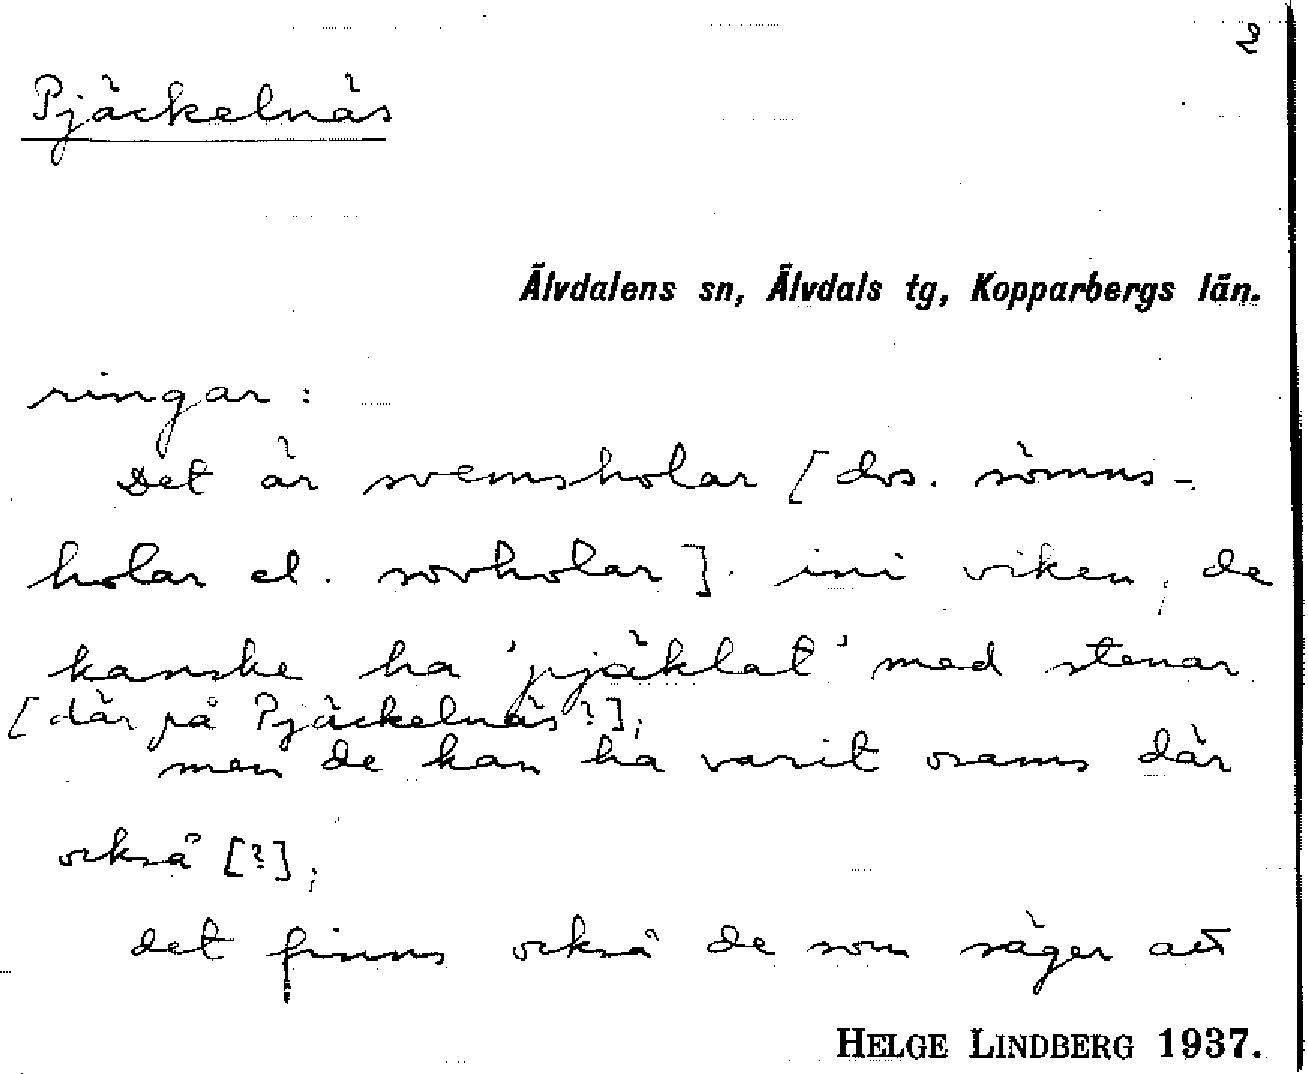 2
Pjäckelnäs
Älvdalens sn, Älvdals tg, Kopparbergs län.
ringar:
Det är svemsholar [dvs. sömns-
holar el. sovholar]. ini viken, de
kanske ha 'pjäklat' med stenar
[där på Pjäckelnäs?];
men de kan ha varit osams där
också [?];
det finns också de som säger att
HELGE LINDBERG 1937.